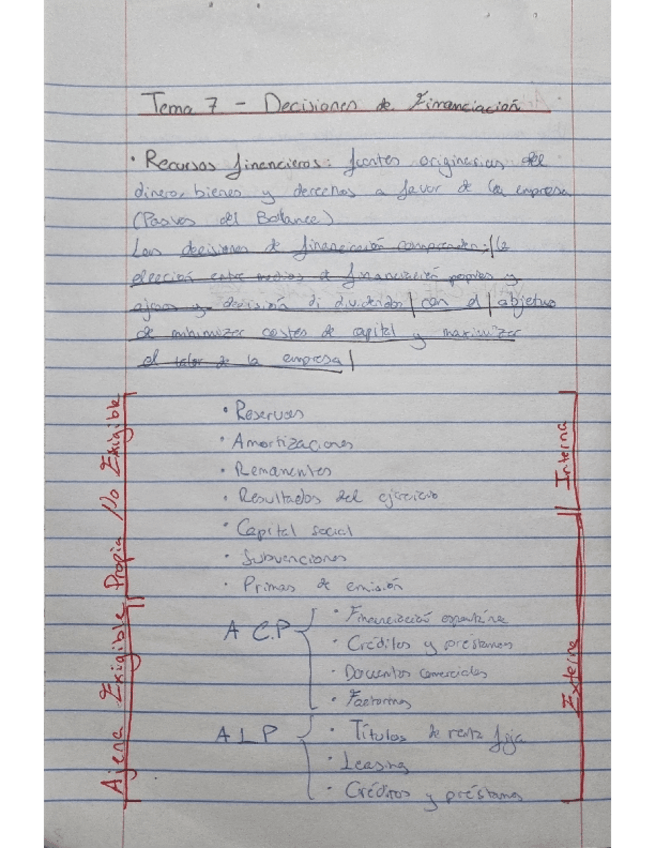 Tema 7 - Decisiones de Financiación
· Recursos financieros: fuentes originarias del
dinero, bienes y derechos a favor de la empresa
(Pasivos del Balance)
Las decisiones de financiación comprenden: | la
elección entre medios de financiación propios y
ajenos y decisión di dividendos | con el | objetivo
de minimizar costes de capital y maximizar
el valor de la empresa |
· Reservas
· Amortizaciones
· Remanentes
· Resultados del ejercicio
· Capital social
· Subvenciones
· Primas de emisión
A C.P
· Financiación espontánea
· Créditos y préstamos
· Descuentos comerciales
· Factoring
A L P
· Títulos de renta fija
· Leasing
· Créditos y préstamos
Propia No Exigible
Ajena Exigible
Interna
Externa